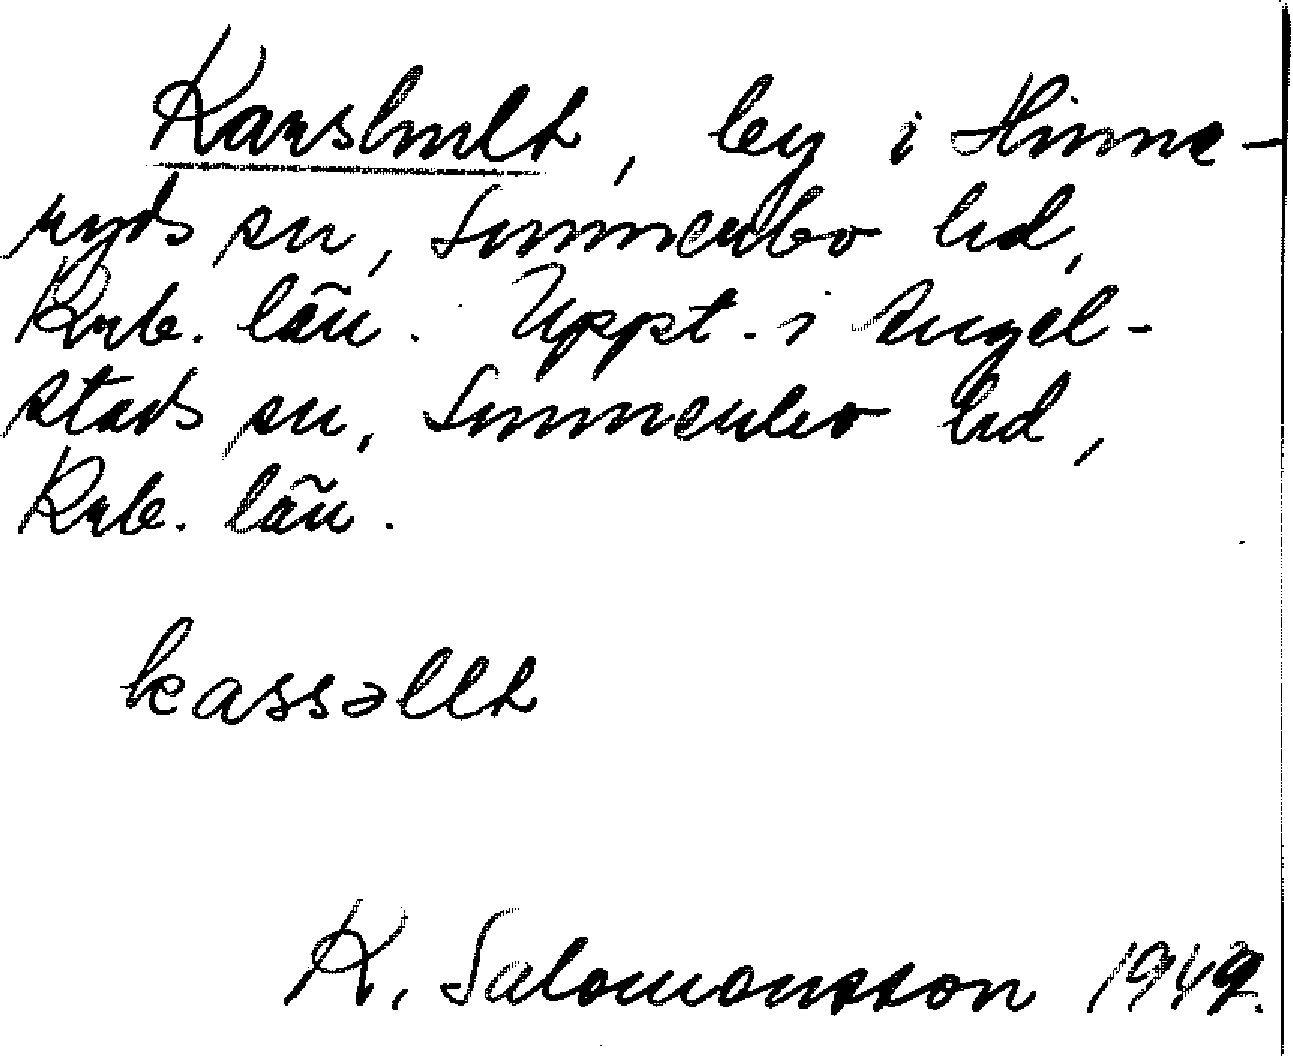 Karshult, by i Hinne-
ryds sn, Sunnerbo hd,
Krb. län. Uppt. i Angel-
stads sn, Sunnerbo hd,
Krb. län.
kassəllt
K. Salomonsson 1949.